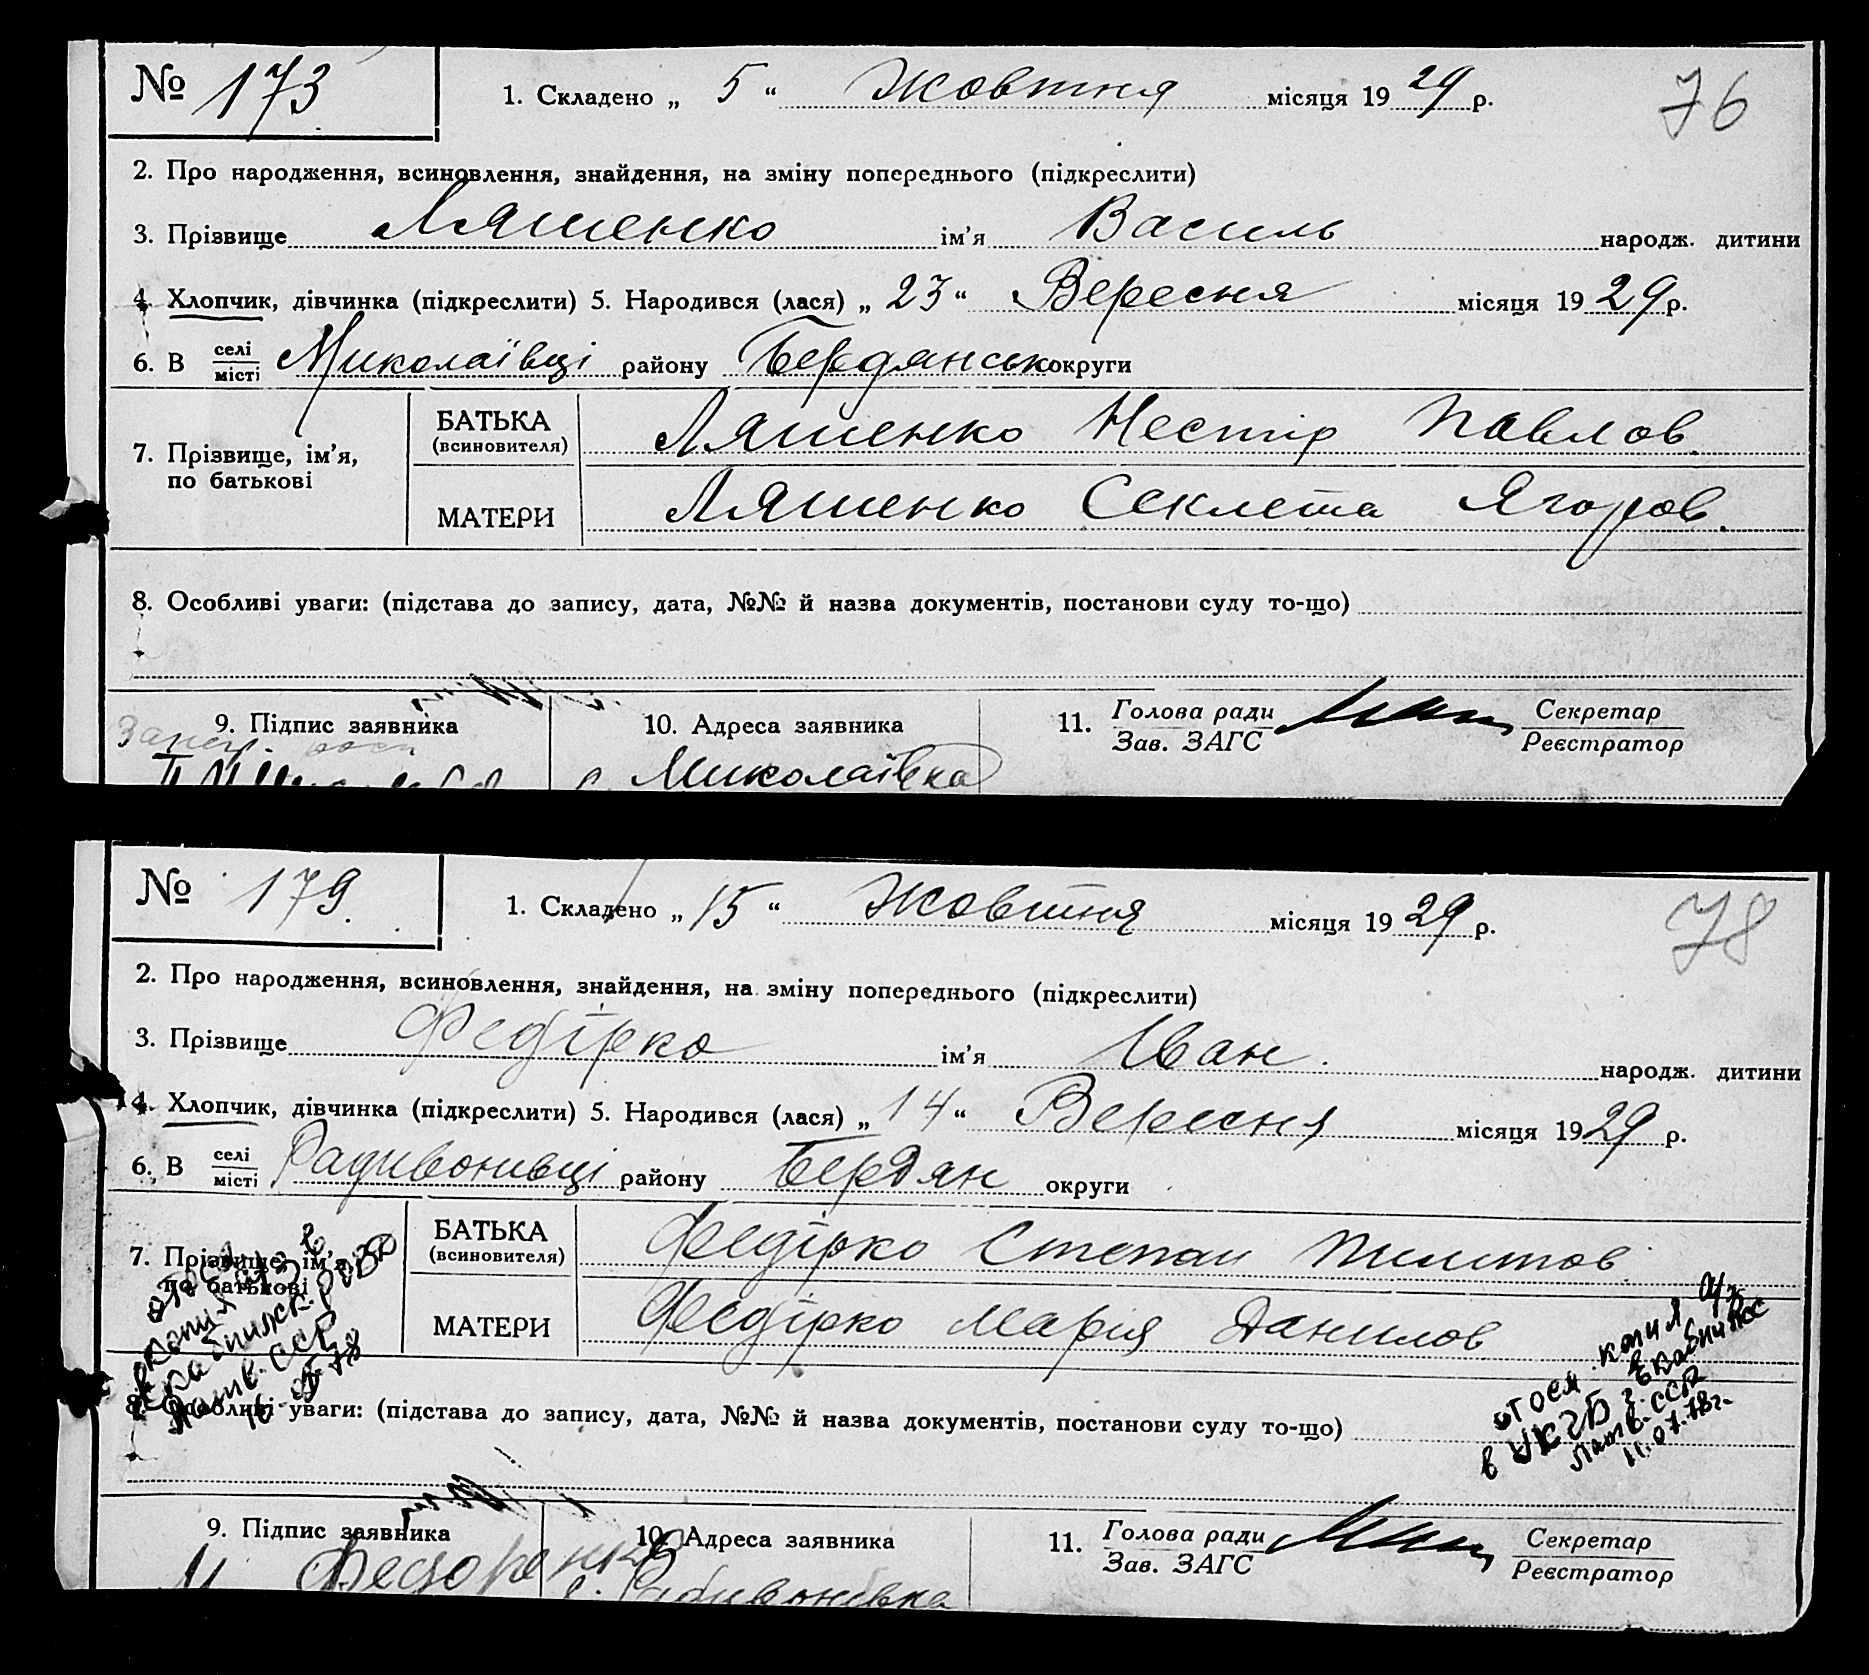 № 173
1. Складено „ 5 “ Жовтня місяця 1929 р.
76
2. Про народження, всиновлення, знайдення, на зміну попереднього (підкреслити)
3. Прізвище Ляшенко ім’я Василь народж. дитини
4. Хлопчик, дівчинка (підкреслити) 5. Народився (лася) „ 23 “ Вересня місяця 1929 р.
6. В селі місті Миколаївці району Бердянськ округи
7. Прізвище, ім’я, по батькові
БАТЬКА (всиновителя) Ляшенко Нестір Павлов.
МАТЕРИ Ляшенко Секлета Ягоров.
8. Особливі уваги: (підстава до запису, дата, №№ й назва документів, постанови суду то-що)
9. Підпис заявника
10. Адреса заявника
с. Миколаївка
11. Голова ради Зав. ЗАГС
Секретар Реєстратор
№ 179.
1. Складено „ 15 “ Жовтня місяця 1929 р.
78
2. Про народження, всиновлення, знайдення, на зміну попереднього (підкреслити)
3. Прізвище Федірко ім’я Іван. народж. дитини
4. Хлопчик, дівчинка (підкреслити) 5. Народився (лася) „ 14 “ Вересня місяця 1929 р.
6. В селі місті Радивонивці району Бердян округи
7. Прізвище, ім’я, по батькові
БАТЬКА (всиновителя) Федірко Степан Пилипов.
МАТЕРИ Федірко Марія Данилов
копия
Латв. ССР
78
отосл. копия
в УКГБ г.
Латв. ССР
11.07.78 г.
8. Особливі уваги: (підстава до запису, дата, №№ й назва документів, постанови суду то-що)
9. Підпис заявника
Федоренко
10. Адреса заявника
с. Радивонівка
11. Голова ради Зав. ЗАГС
Секретар Реєстратор